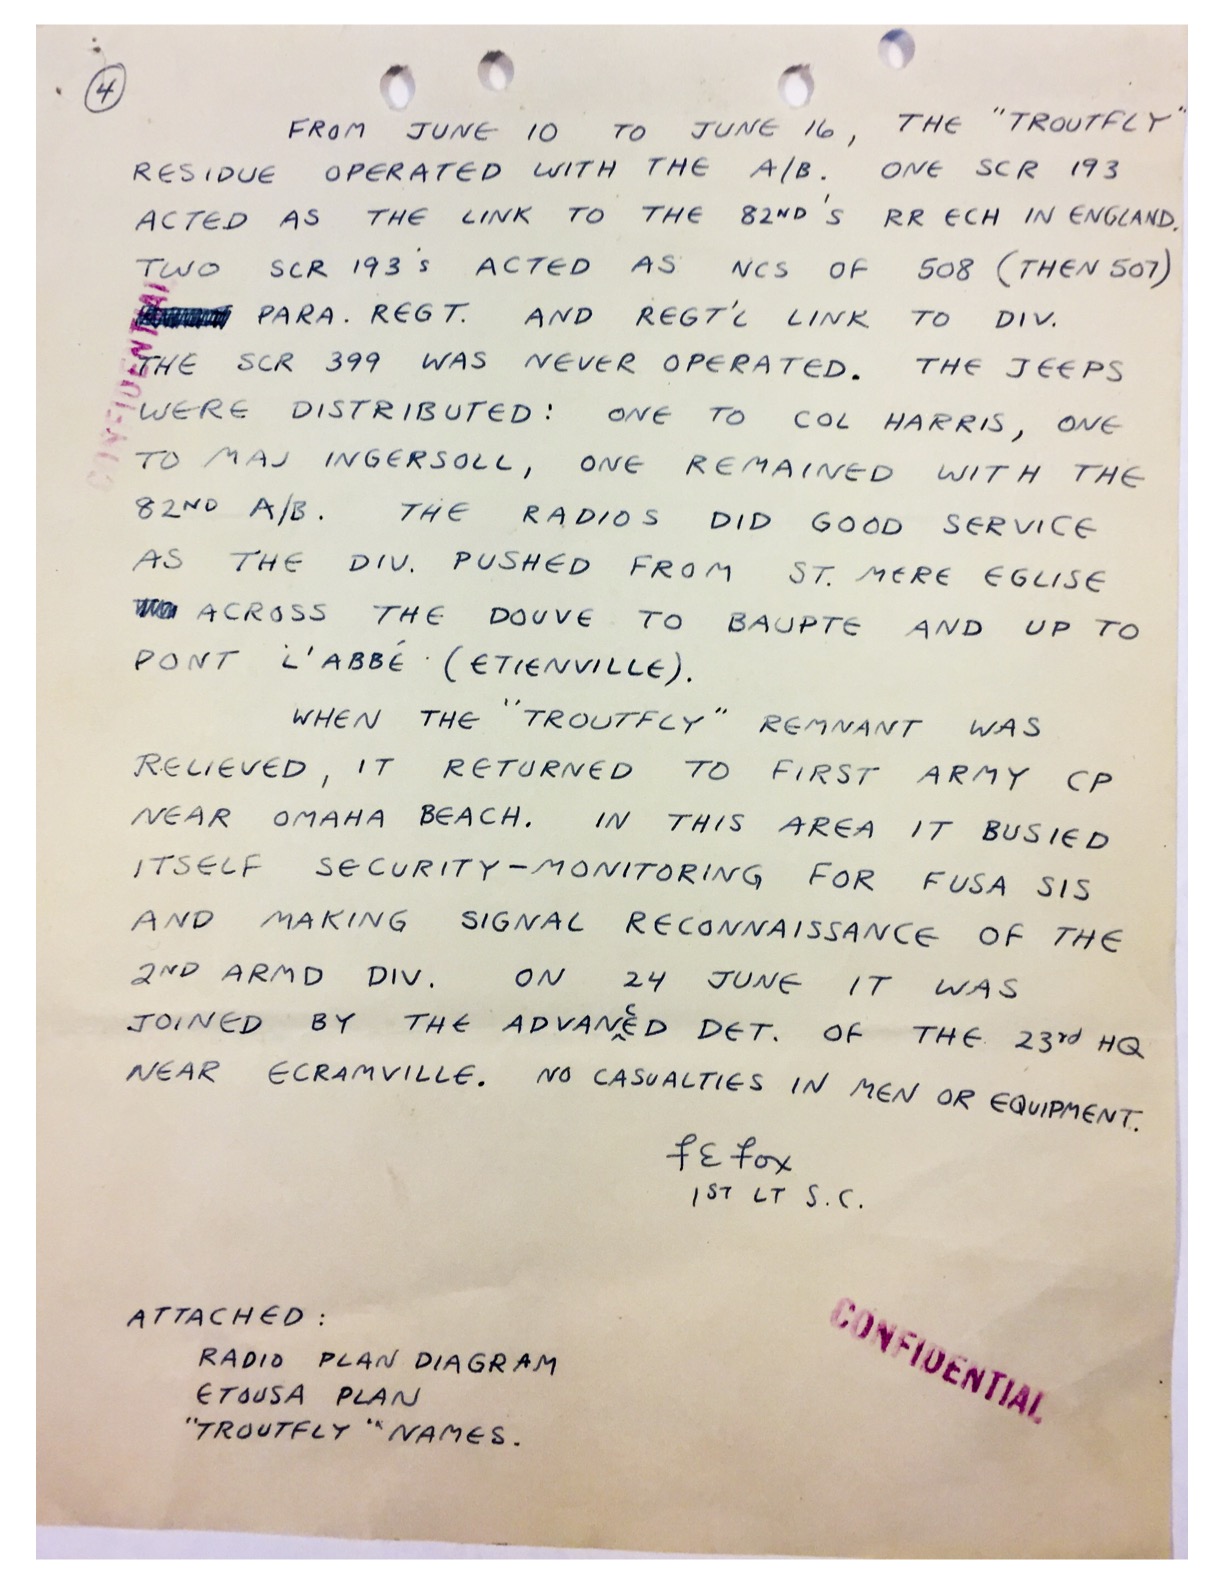 4
FROM JUNE 10 TO JUNE 16, THE "TROUTFLY"
RESIDUE OPERATED WITH THE A/B. ONE SCR 193
ACTED AS THE LINK TO THE 82ND'S RR ECH IN ENGLAND.
TWO SCR 193's ACTED AS NCS OF 508 (THEN 507)
PARA. REGT. AND REGT'L LINK TO DIV.
THE SCR 399 WAS NEVER OPERATED. THE JEEPS
WERE DISTRIBUTED: ONE TO COL HARRIS, ONE
TO MAJ INGERSOLL, ONE REMAINED WITH THE
82ND A/B. THE RADIOS DID GOOD SERVICE
AS THE DIV. PUSHED FROM ST. MERE EGLISE
ACROSS THE DOUVE TO BAUPTE AND UP TO
PONT L'ABBÉ (ETIENVILLE).
WHEN THE "TROUTFLY" REMNANT WAS
RELIEVED, IT RETURNED TO FIRST ARMY CP
NEAR OMAHA BEACH. IN THIS AREA IT BUSIED
ITSELF SECURITY-MONITORING FOR FUSA SIS
AND MAKING SIGNAL RECONNAISSANCE OF THE
2ND ARMD DIV. ON 24 JUNE IT WAS
JOINED BY THE ADVANCED DET. OF THE 23rd HQ
NEAR ECRAMVILLE. NO CASUALTIES IN MEN OR EQUIPMENT.
F E Fox
1ST LT S.C.
ATTACHED:
RADIO PLAN DIAGRAM
ETOUSA PLAN
"TROUTFLY" NAMES.
CONFIDENTIAL
CONFIDENTIAL